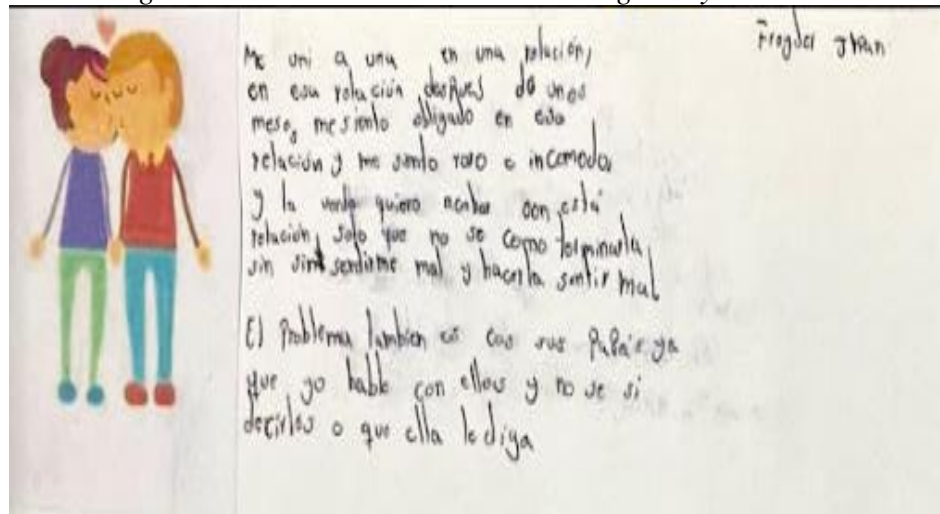 Frogder Jhan
Me uni a una en una relación,
en esa relación despues de unos
meses me siento obligado en esa
relación y me siento raro e incomodo,
y la verda quiero acabar con esta
relación, solo que no se como terminarla
sin sentirme mal y hacerla sentir mal
El Problema tambien es con sus Papás ya
que yo hable con ellos y no se si
decirles o que ella le diga